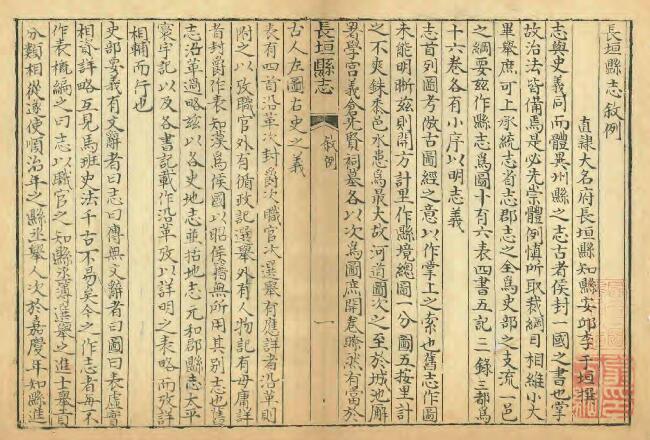 長垣縣志敘例
直隸大名府長垣縣知縣安邱李于垣撰
志與史義同而體異州縣之志古者侯封一國之書也掌
故治法皆備焉是必先崇體例慎所取裁綱目相維小大
畢舉庶可上承統志省志郡志之全為史部之支流一邑
之綱要玆作縣志為圖十有六表四書五記三錄三都為
十六卷各有小序以明志義
志首列圖考倣古圖經之意以作掌上之索也舊志作圖
未能明晰玆則開方計里作縣境總圖一分圖五按里計
之不爽銖黍邑水患為最大故河道圖次之至於城池廨
署學宮義倉先賢祠墓各以次為圖庶開卷瞭然有當於
長垣縣志 敘例 一
古人左圖右史之義
表有四首沿革次封爵次職官次選舉有應詳者沿革則
附之以攷職官外有循政記選舉外有人物記有毋庸詳
者封爵作表知漢為侯國以昭侯無所用其別志也舊
志沿革過略玆以各史地志並括地志元和郡縣志太平
寰宇記以及各書記載作沿革攷以詳明之表略而攷詳
相輔而行也
史部要義有文辭者曰志曰傳無文辭者曰圖曰表虛實
相資詳略互見馬班史法千古不易矣今之作志者每不
作表概編之曰志以職官之知縣丞簿選舉之進士舉貢
分類相從遂使順治年之縣丞舉人次於嘉慶年知縣進